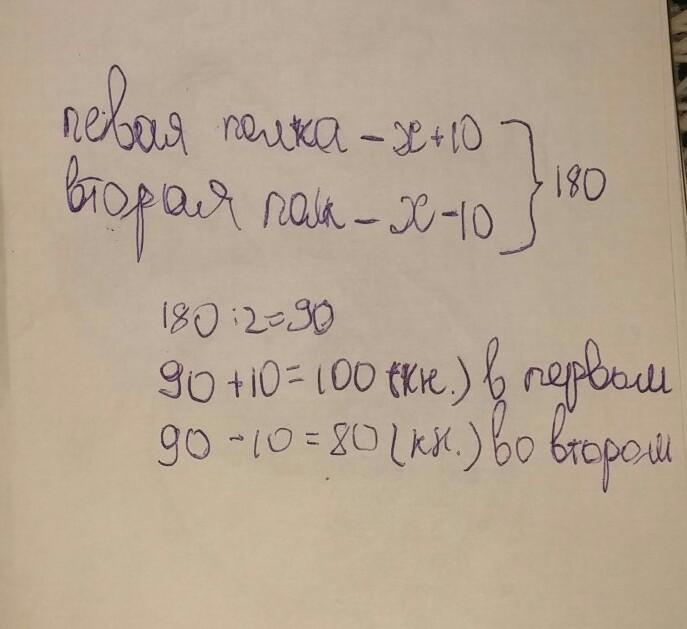 певая полка - x+10
вторая полк - x-10
180
180:2=90
90+10=100 (кн.) в первом
90-10=80 (кн.) во втором